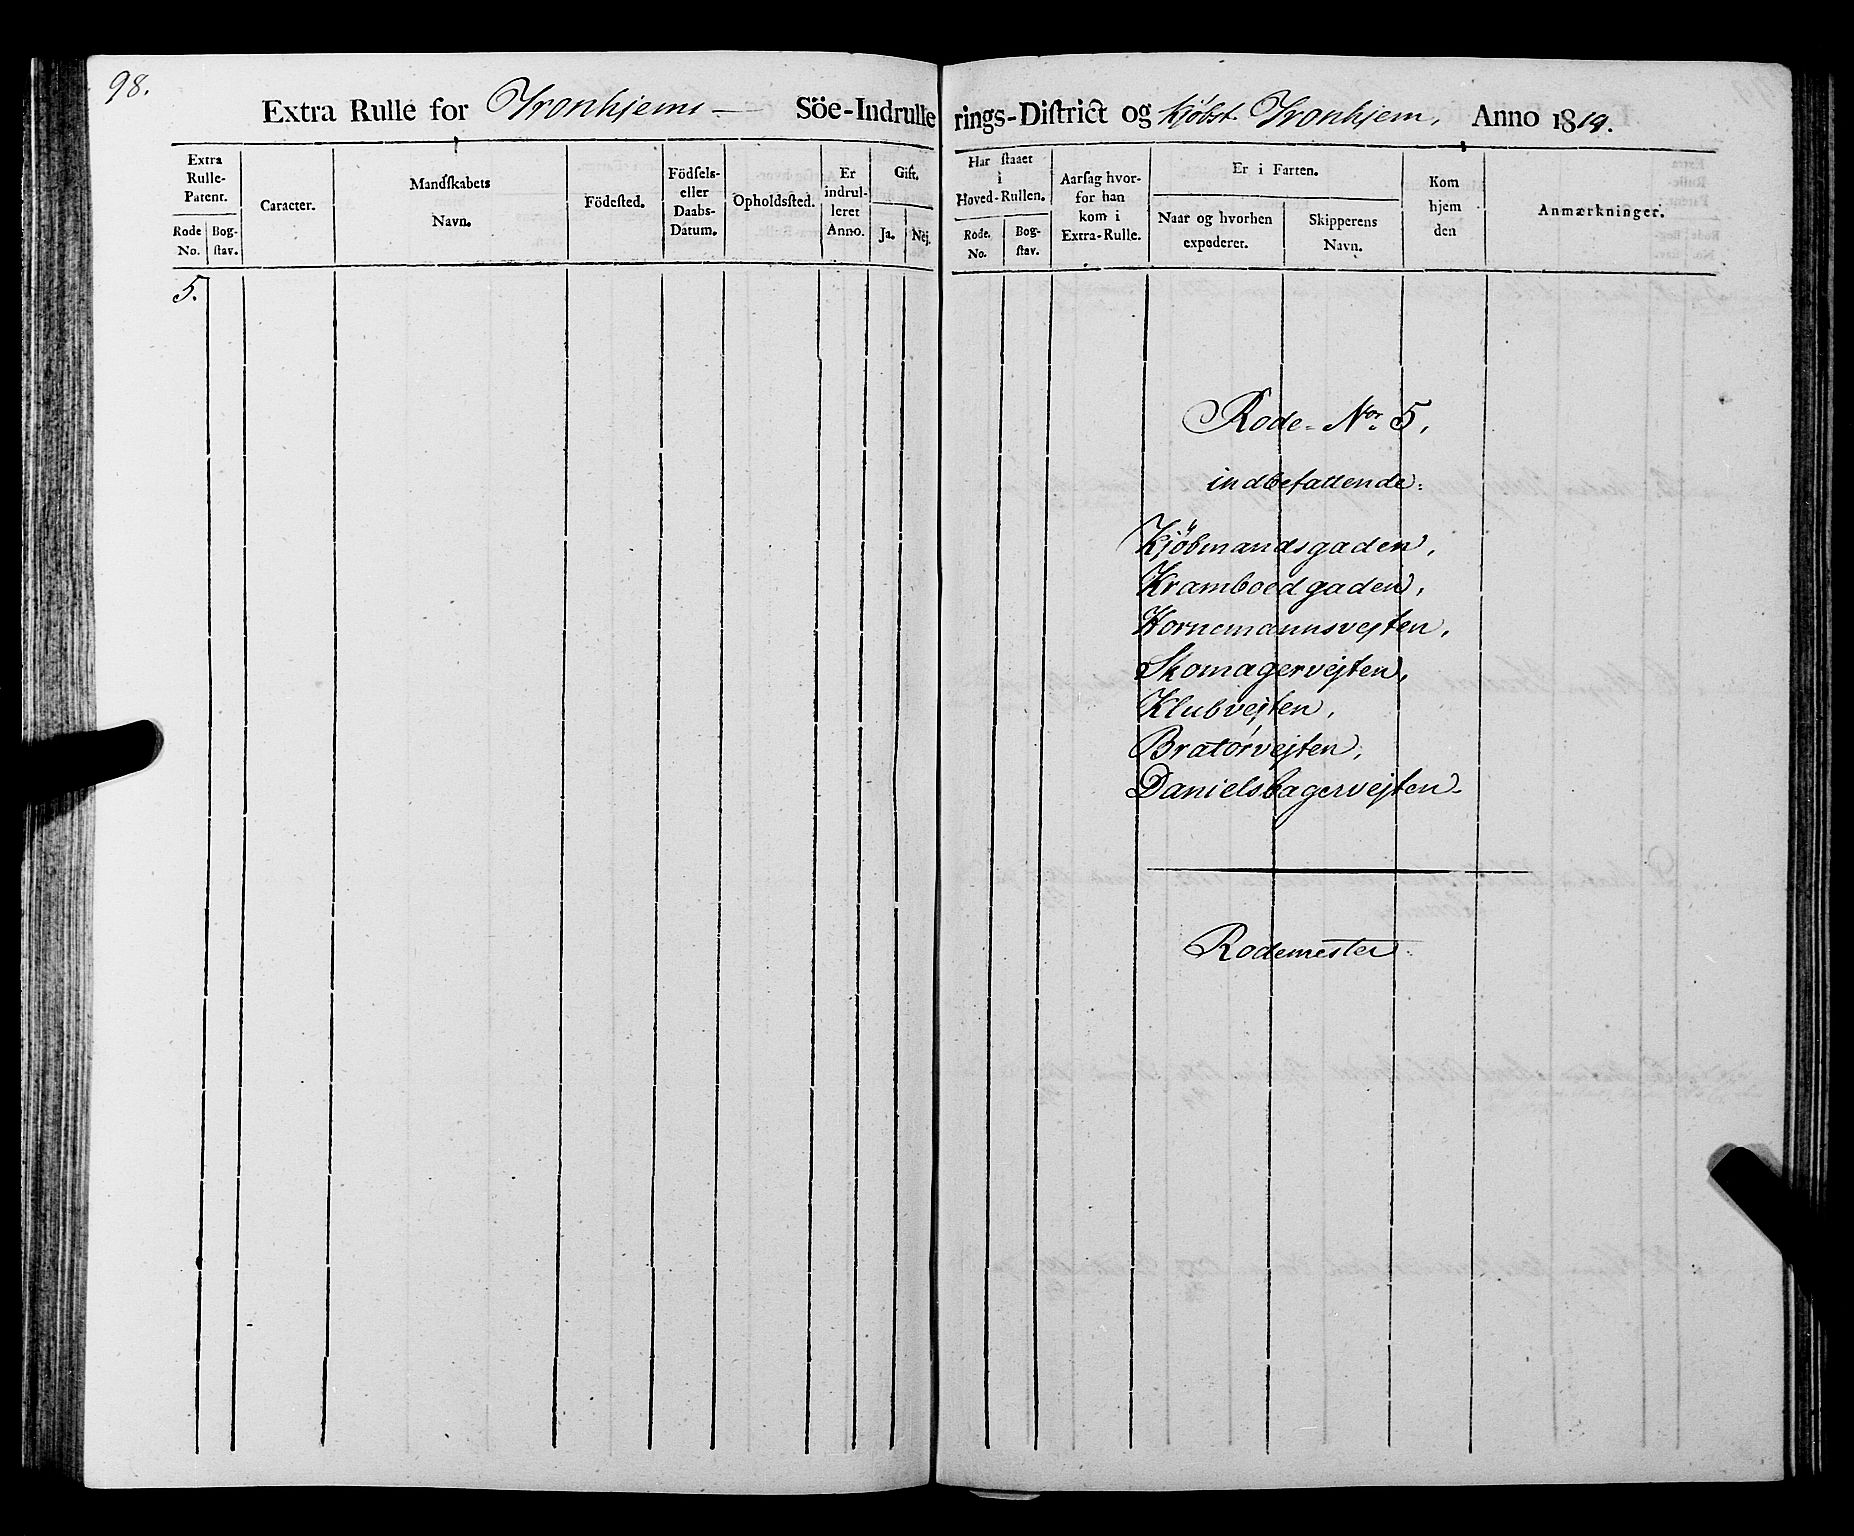 98.
Extra Rulle for Tronhjems - Söe-Indrullerings-District og Kjöbst. Tronhjem, Anno 1819.
Extra Rulle-Patent.
Rode No.
Bogstav.
Caracter.
Mandskabets Navn.
Födested.
Födsels- eller Daabs-Datum.
Opholdssted.
Er indrulleret Anno.
Gift.
Ja.
Nej.
Har staaet i Hoved-Rullen.
Rode. No.
Bogstav.
Aarsag hvorfor han kom i Extra-Rulle.
Er i Farten.
Naar og hvorhen expederet.
Skipperens Navn.
Kom hjem den
Anmærkninger.
5.
Rode Nor. 5,
indbefattende:
Kjöbmandsgaden,
Kramboedgaden,
Hornemannsvejten,
Skomagervejten,
Klubvejten,
Bratörvejten,
Danielsbagervejten.
Rodemester